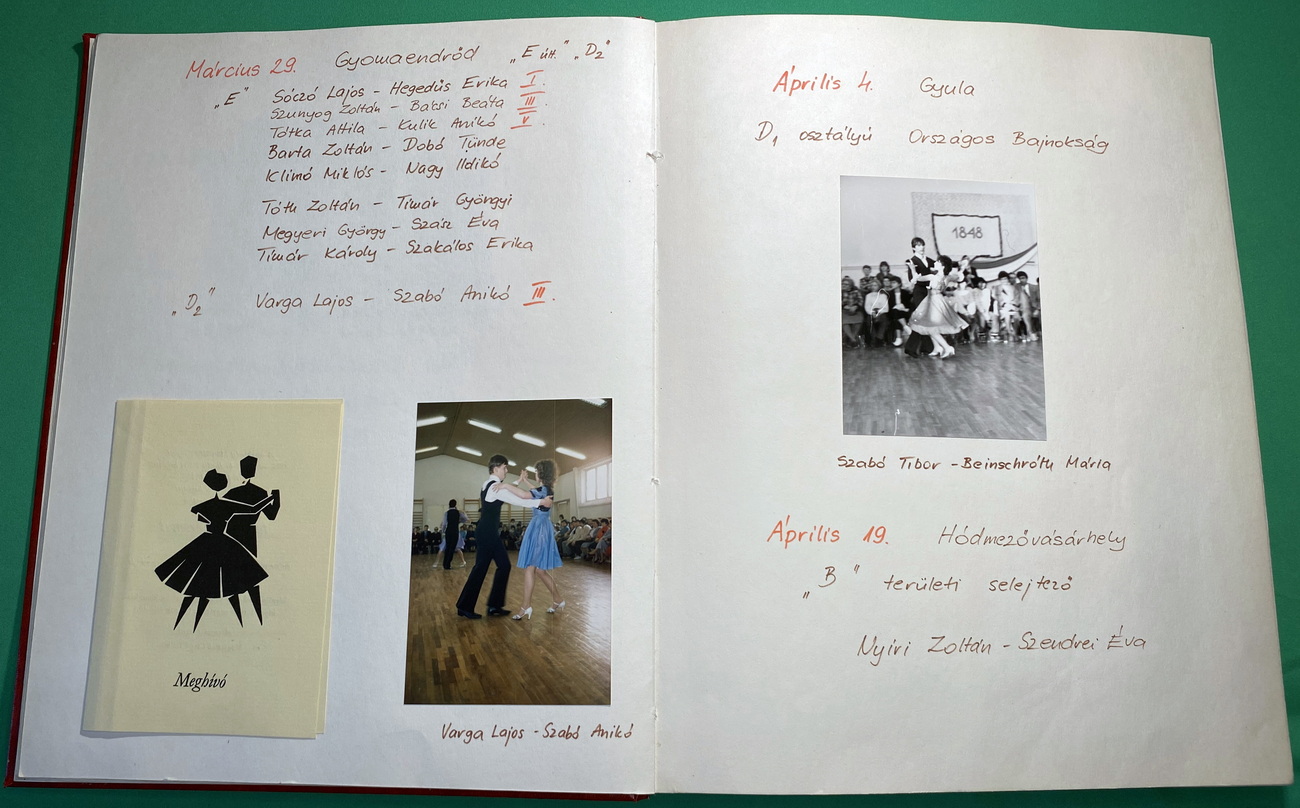 Március 29. Gyomaendrőd „E út." „D2"
„E" Sóczó Lajos - Hegedűs Erika I.
Szunyog Zoltán - Bácsi Beáta III.
Tótka Attila - Kulik Anikó V.
Barta Zoltán - Dobó Tünde
Klimó Miklós - Nagy Ildikó
Tóth Zoltán - Timár Gyöngyi
Megyeri György - Szász Éva
Timár Károly - Szakálos Erika
„D2" Varga Lajos - Szabó Anikó III.
Meghívó
Varga Lajos - Szabó Anikó
Április 4. Gyula
D1 osztályú Országos Bajnokság
1848
Szabó Tibor - Beinschróth Mária
Április 19. Hódmezővásárhely
„B" területi selejtező
Nyíri Zoltán - Szendrei Éva